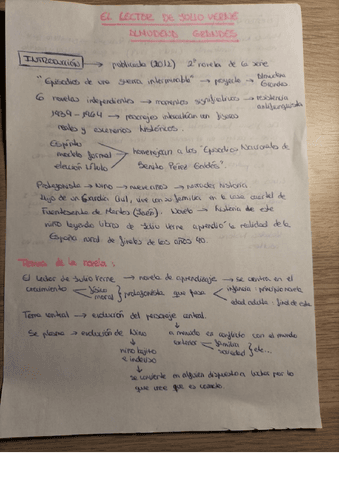 EL LECTOR DE JULIO VERNE
ALMUDENA GRANDES
INTRODUCCIÓN → publicada (2012) 2ª novela de la serie
"Episodios de una guerra interminable" → proyecto → Almudena Grandes
6 novelas independientes → momentos significativos → resistencia antifranquista
1939 - 1964 → personajes interactúan con figuras
reales y escenarios históricos.
Espíritu
modelo formal
elección título
homenajean a los "Episodios Nacionales de
Benito Pérez Galdós".
Protagonista → Nino → nueve años → narrador historia
Hijo de un Guardia Civil, vive con su familia en la casa cuartel de
Fuensanta de Martos (Jaén). Novela → historia de este
niño leyendo libros de Julio Verne aprendió la realidad de la
España rural de finales de los años 40.
Temas de la novela:
El lector de Julio Verne → novela de aprendizaje → se centra en el
crecimiento físico moral protagonista que pasa infancia: principio novela
edad adulta: final de esta
Tema central → evolución del personaje central.
Se plasma → evolución de Nino → a menudo en conflicto con el mundo
exterior familia sociedad etc...
niño bajito
e indeciso
se convierte en alguien dispuesto a luchar por lo
que cree que es correcto.